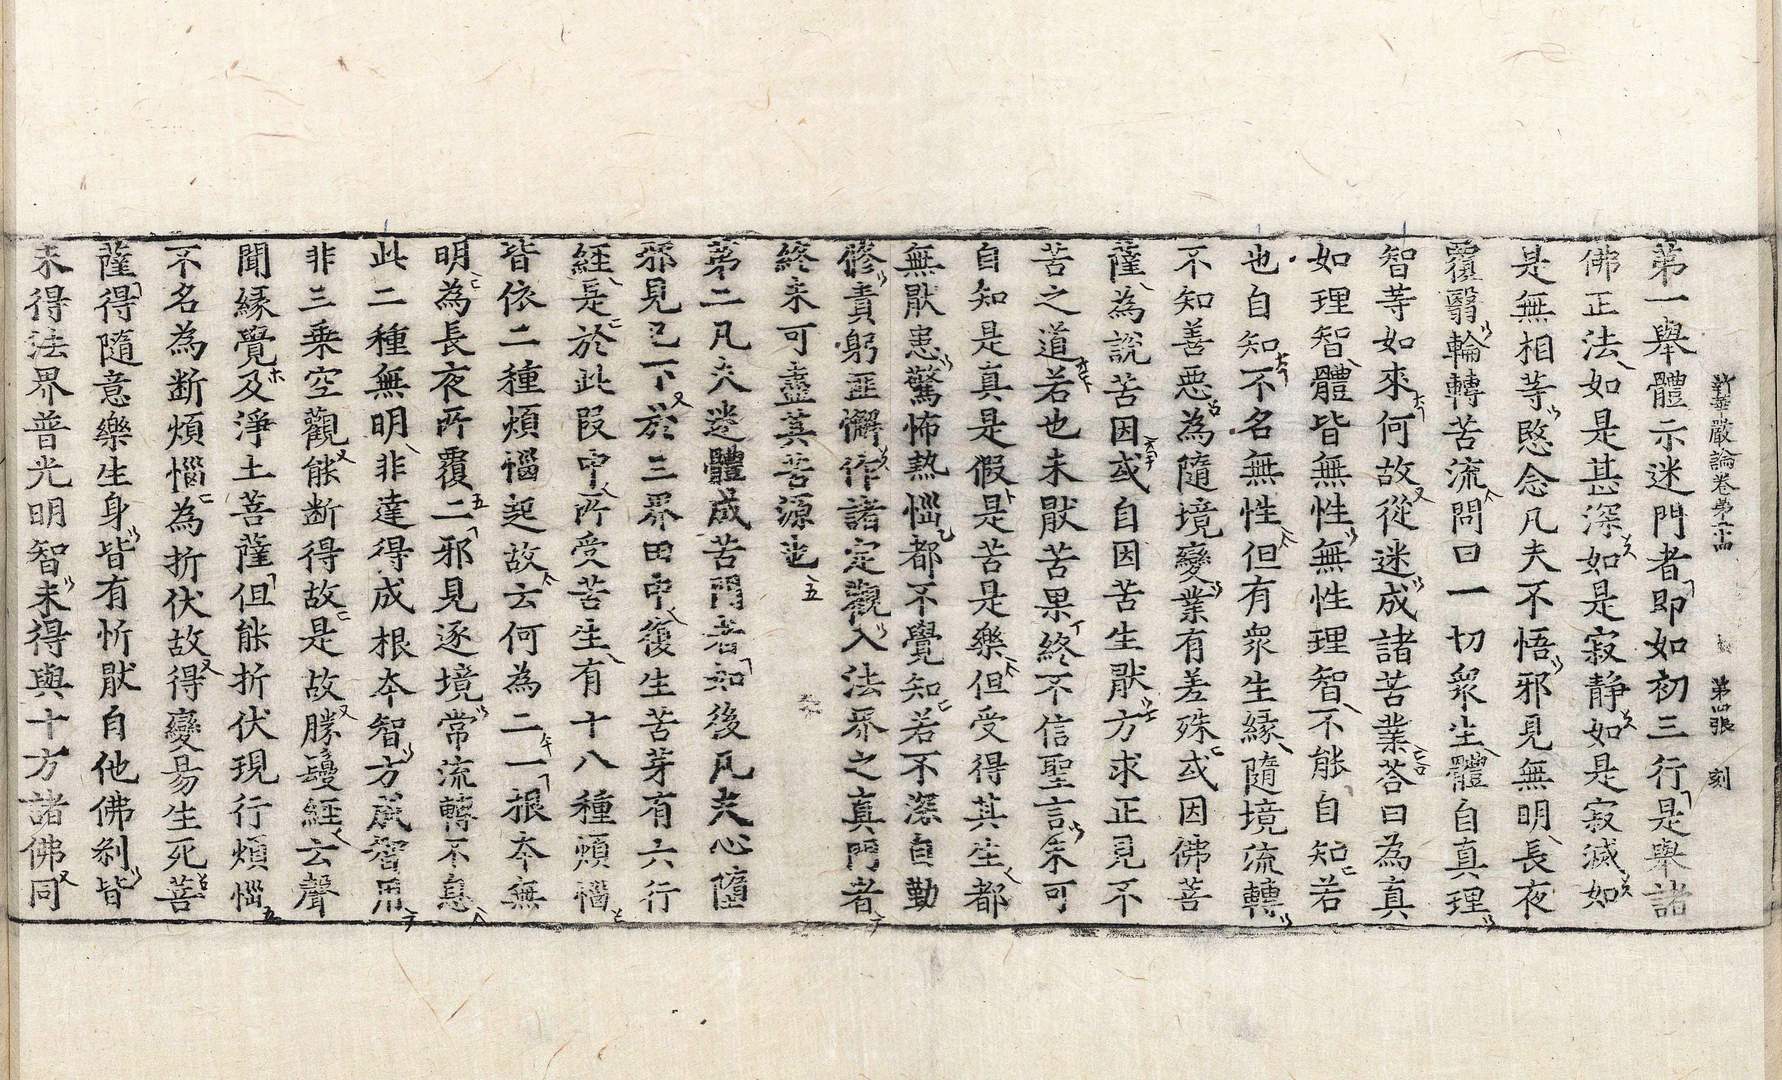 新華嚴論卷第十四 第四張 刻
第一舉體示迷門者即如初三行是舉諸
佛正法如是甚深如是寂静如是寂滅如
是無相等愍念凡夫不悟邪見無明長夜
覆翳輪轉苦流問曰一切衆生體自真理
智等如來何故從迷成諸苦業荅曰為真
如理智體皆無性無性理智不能自知若
也自知不名無性但有衆生緣隨境流轉
不知善惡為隨境變業有差殊或因佛菩
薩為說苦因或自因苦生猒方求正見不
苦之道若也未猒苦果終不信聖言余可
自知是真是假是苦是樂但受得其生都
無猒患驚怖熱惱都不覺知若不深自勤
修責躬匪懈作諸定觀入法界之真門者
終未可盡其苦源也
第二凡夫迷體成苦門者如後凡夫心墮
邪見已下於三界田中復生苦芽有六行
經是於此叚中所受苦生有十八種煩惱
皆依二種煩惱起故云何為二一根夲無
明為長夜所覆二邪見逐境常流轉不息
此二種無明非達得成根夲智方成智用
非三乗空觀能断得故是故勝鬘經云聲
聞緣覺及淨土菩薩但能折伏現行煩惱
不名為断煩惱為折伏故得變易生死菩
薩得隨意樂生身皆有忻猒自他佛刹皆
未得法界普光明智未得與十方諸佛同